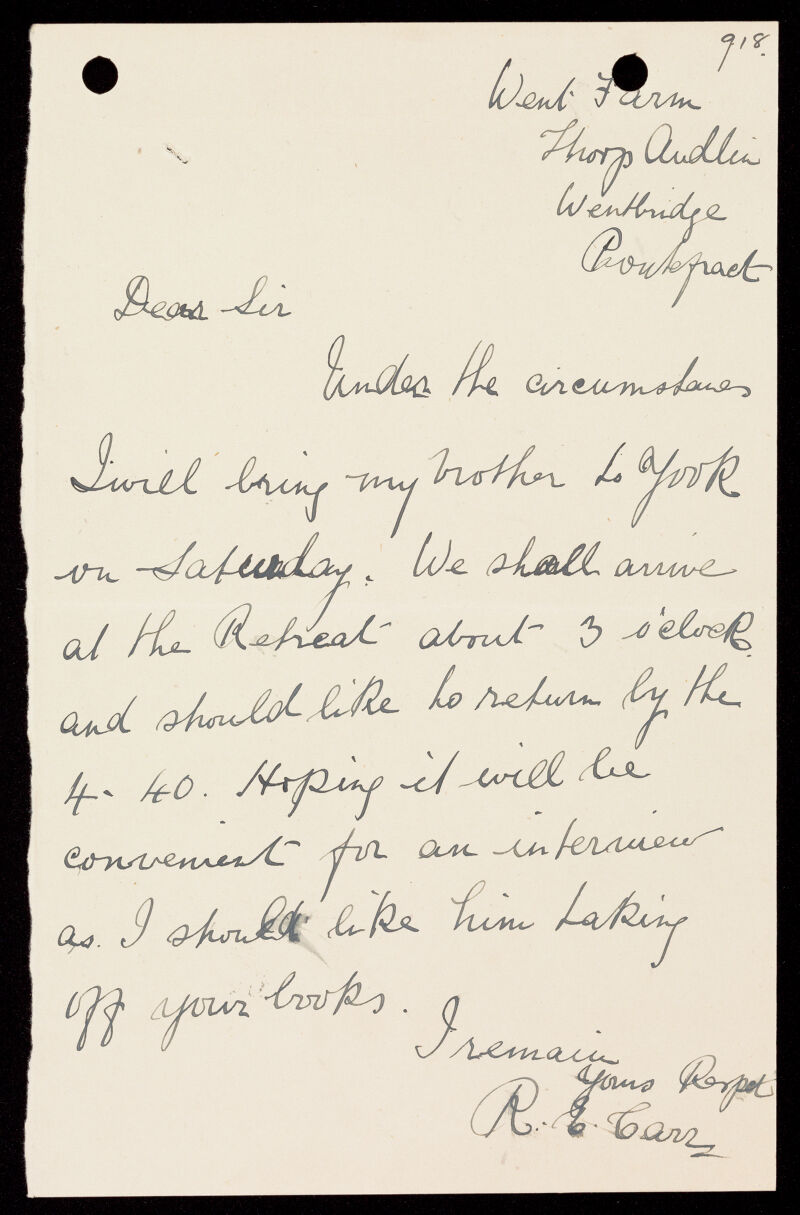 918.
Went Farm
Thorp Audlin
Wentbridge
Pontefract
Dear Sir
Under the circumstances
I will bring my brother to York
on Saturday. We shall arrive
at the Retreat about 3 o'clock
and should like to return by the
4-40. Hoping it will be
convenient for an interview
as. I should like him taking
off your books.
I remain
Yours Respet
R. E. Carr